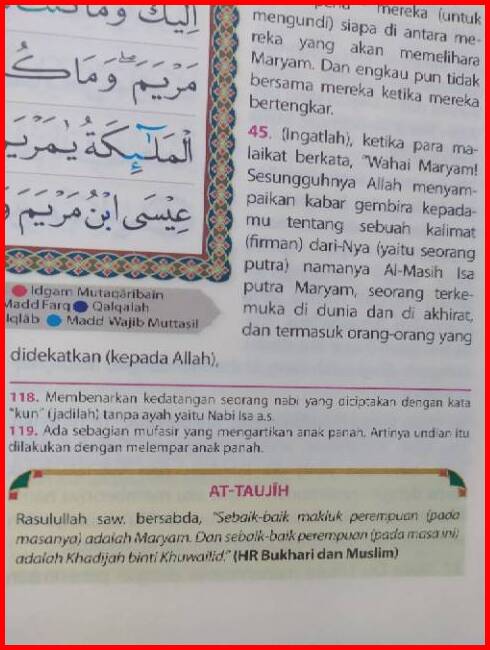 إليك وما كنت
مريم وما ك
الملٰٓئكة يٰمري
عيسى ابن مريم و
Idgam Mutaqāribain
Madd Farq Qalqalah
Iqlāb Madd Wajib Muttasil
mereka (untuk
mengundi) siapa di antara me-
reka yang akan memelihara
Maryam. Dan engkau pun tidak
bersama mereka ketika mereka
bertengkar.
45. (Ingatlah), ketika para ma-
laikat berkata, "Wahai Maryam!
Sesungguhnya Allah menyam-
paikan kabar gembira kepada-
mu tentang sebuah kalimat
(firman) dari-Nya (yaitu seorang
putra) namanya Al-Masih Isa
putra Maryam, seorang terke-
muka di dunia dan di akhirat,
dan termasuk orang-orang yang
didekatkan (kepada Allah),
118. Membenarkan kedatangan seorang nabi yang diciptakan dengan kata
"kun" (jadilah) tanpa ayah yaitu Nabi Isa a.s.
119. Ada sebagian mufasir yang mengartikan anak panah. Artinya undian itu
dilakukan dengan melempar anak panah.
AT-TAUJĪH
Rasulullah saw. bersabda, "Sebaik-baik makluk perempuan (pada
masanya) adalah Maryam. Dan sebaik-baik perempuan (pada masa ini)
adalah Khadijah binti Khuwailid." (HR Bukhari dan Muslim)